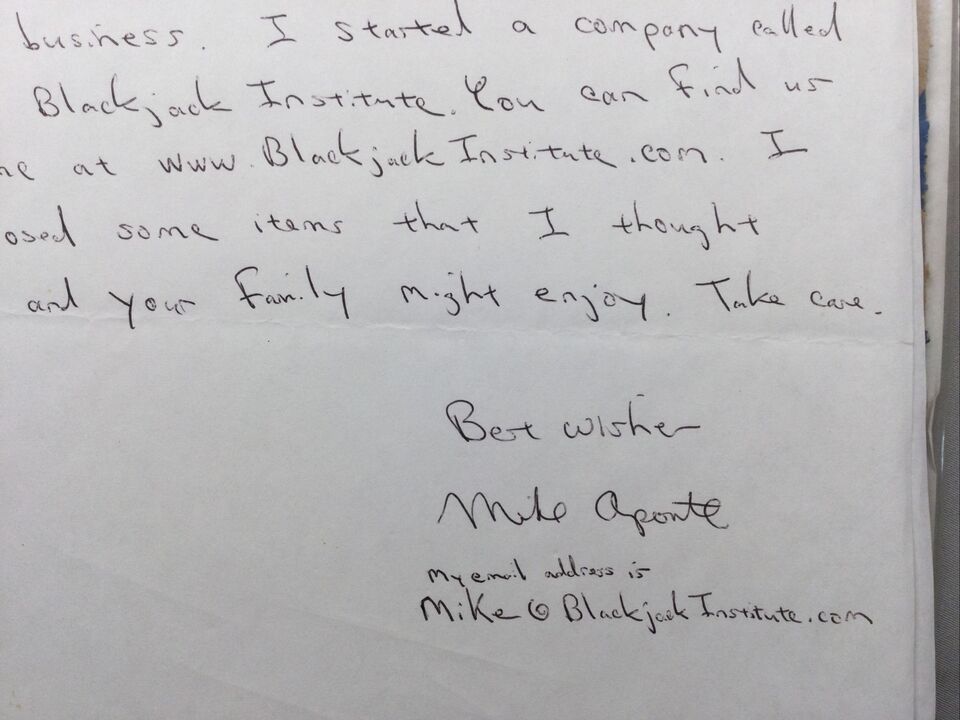 business. I started a company called
Blackjack Institute. You can find us
ne at www.BlackjackInstitute.com. I
osed some items that I thought
and your family might enjoy. Take care.
Best wishes
Mike Aponte
my email address is
Mike@BlackjackInstitute.com